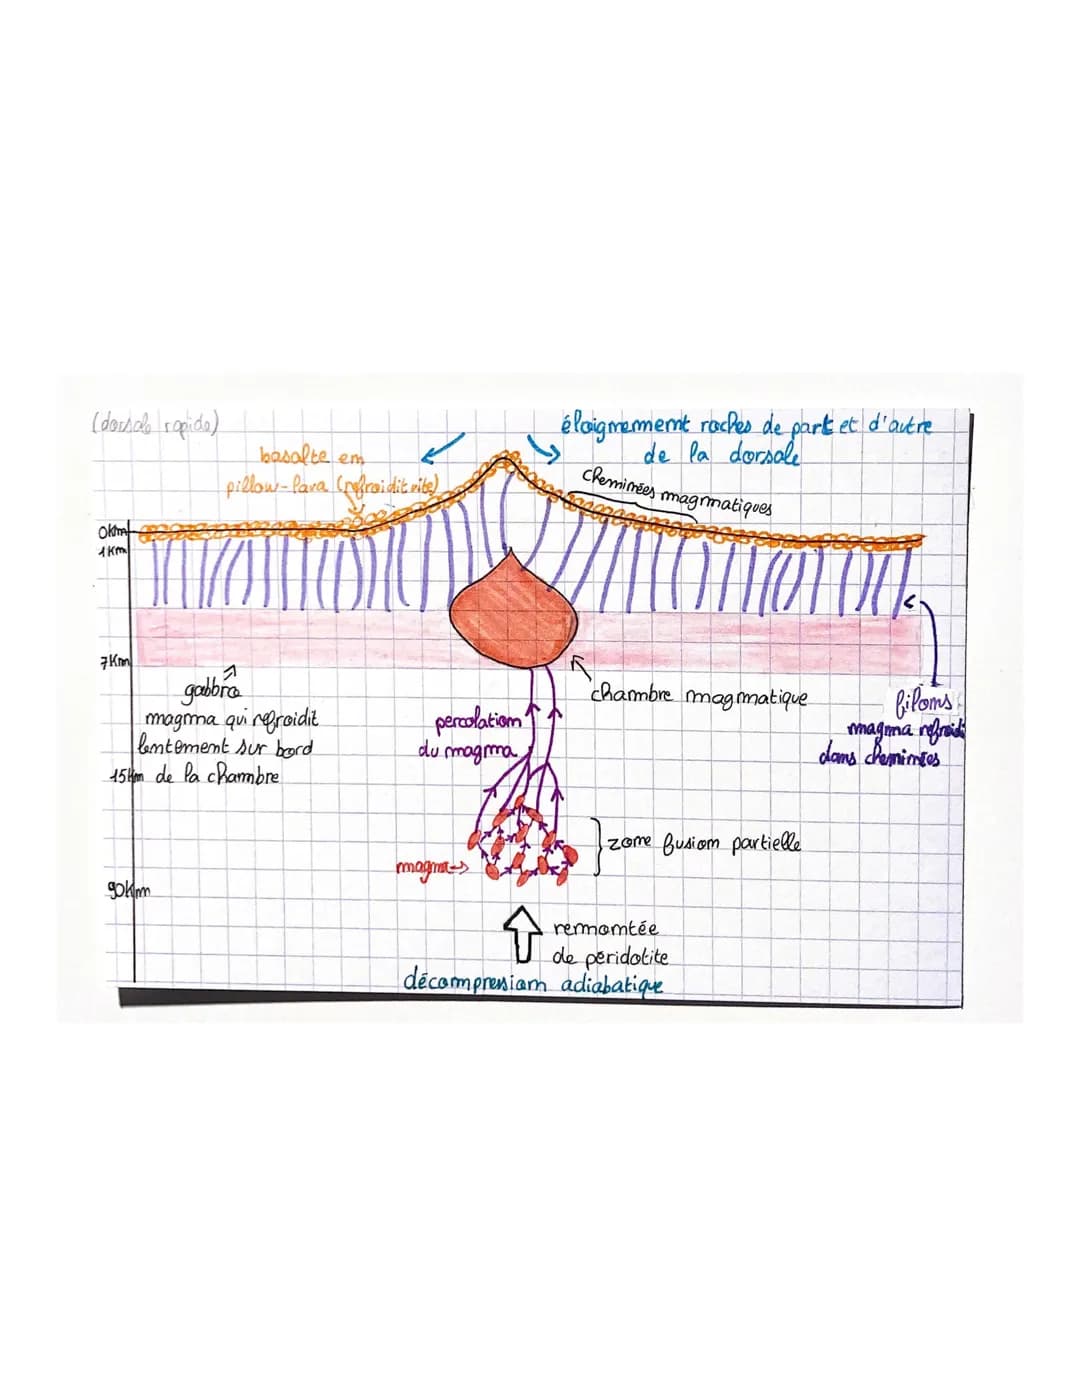 (dorsale rapide)
éloignement roches de part et d'autre
de la dorsale
basalte en
pillow-lava (refroidit vite)
cheminées magmatiques
0km
1km
7km
gabbro
magma qui refroidit
lentement sur bord
de la chambre
15km
chambre magmatique
filons
magma refroidi
dans cheminées
percolation
du magma
zone fusion partielle
magma
90km
remontée
de péridotite
décompression adiabatique